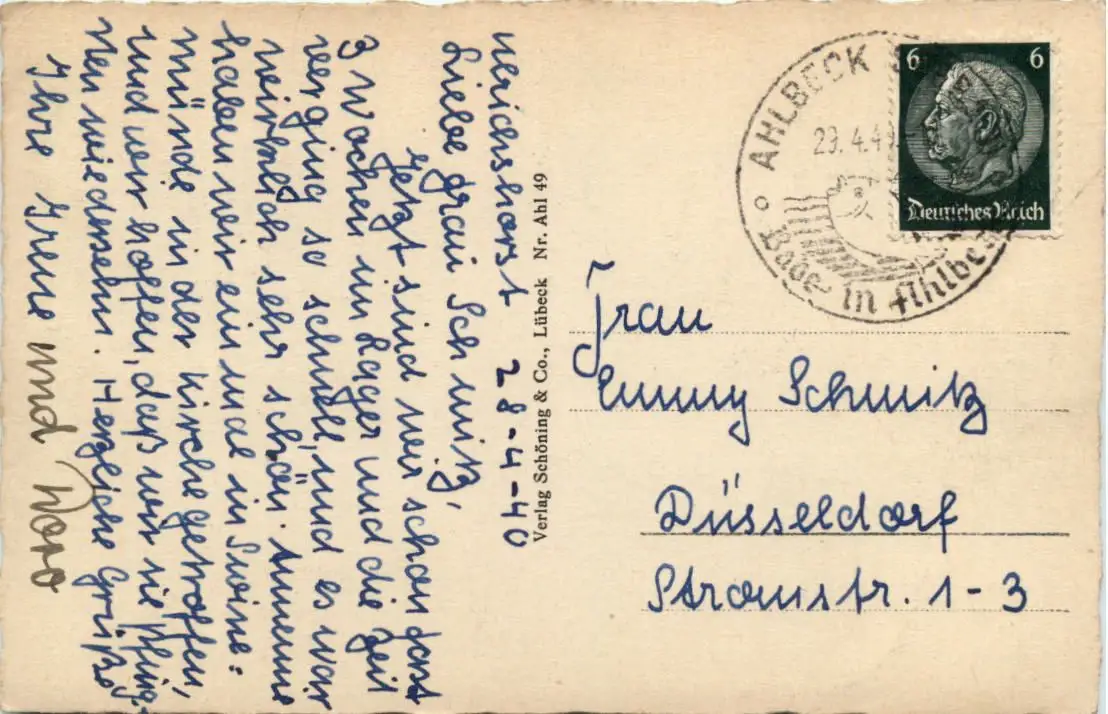 Ulrichshorst 28-4-40
Liebe Frau Schmitz,
Jetzt sind wir schon fast
3 Wochen im Lager und die Zeit
verging so schnell, und es war
wirklich sehr schön. Annemie
haben wir einmal in Swine:
münde in der Kirche getroffen,
und wir hoffen, daß wir sie Pfing-
sten wiedersehn. Herzliche Grüße
Ihre Irene und
Verlag Schöning & Co., Lübeck Nr. Ahl 49
AHLBECK
29.4.4
Bade in Ahlbeck
6 6
Deutsches Reich
Frau
Emmy Schmitz
Düsseldorf
Stromstr. 1-3